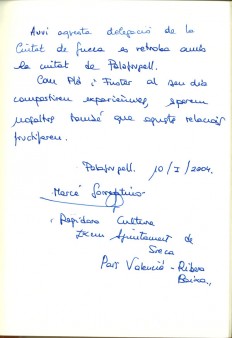 Avui aquesta delegació de la
Ciutat de Sueca es retroba amb
la ciutat de Palafrugell.
Com Pla i Fuster al seu dia
compartiren experiències, esperem
nosaltres també que aquesta relació
fructifere.
Palafrugell. 10/I/2004.
Mercé
Regidora Cultura
Excm Ajuntament de
Sueca
País Valencià - Ribera
Baixa.